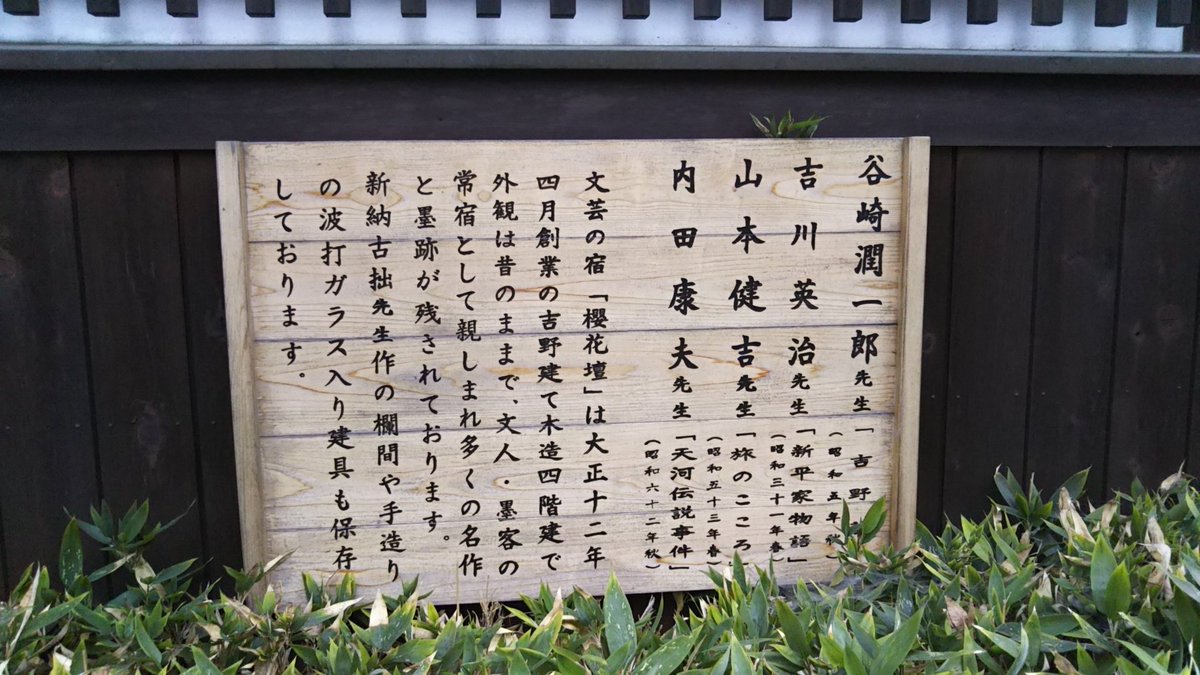 谷崎潤一郎先生「吉野
(昭和五年秋
吉川英治先生「新平家物語」
(昭和三十一年春)
山本健吉先生「旅のこころ
(昭和五十三年春)
内田康夫先生「天河伝説事件」
(昭和六十二年秋)
文芸の宿「櫻花壇」は大正十二年
四月創業の吉野建て木造四階建で
外観は昔のままで、文人・墨客の
常宿として親しまれ多くの名作
と墨跡が残されております。
新納古拙先生作の欄間や手造り
の波打ガラス入り建具も保存
しております。